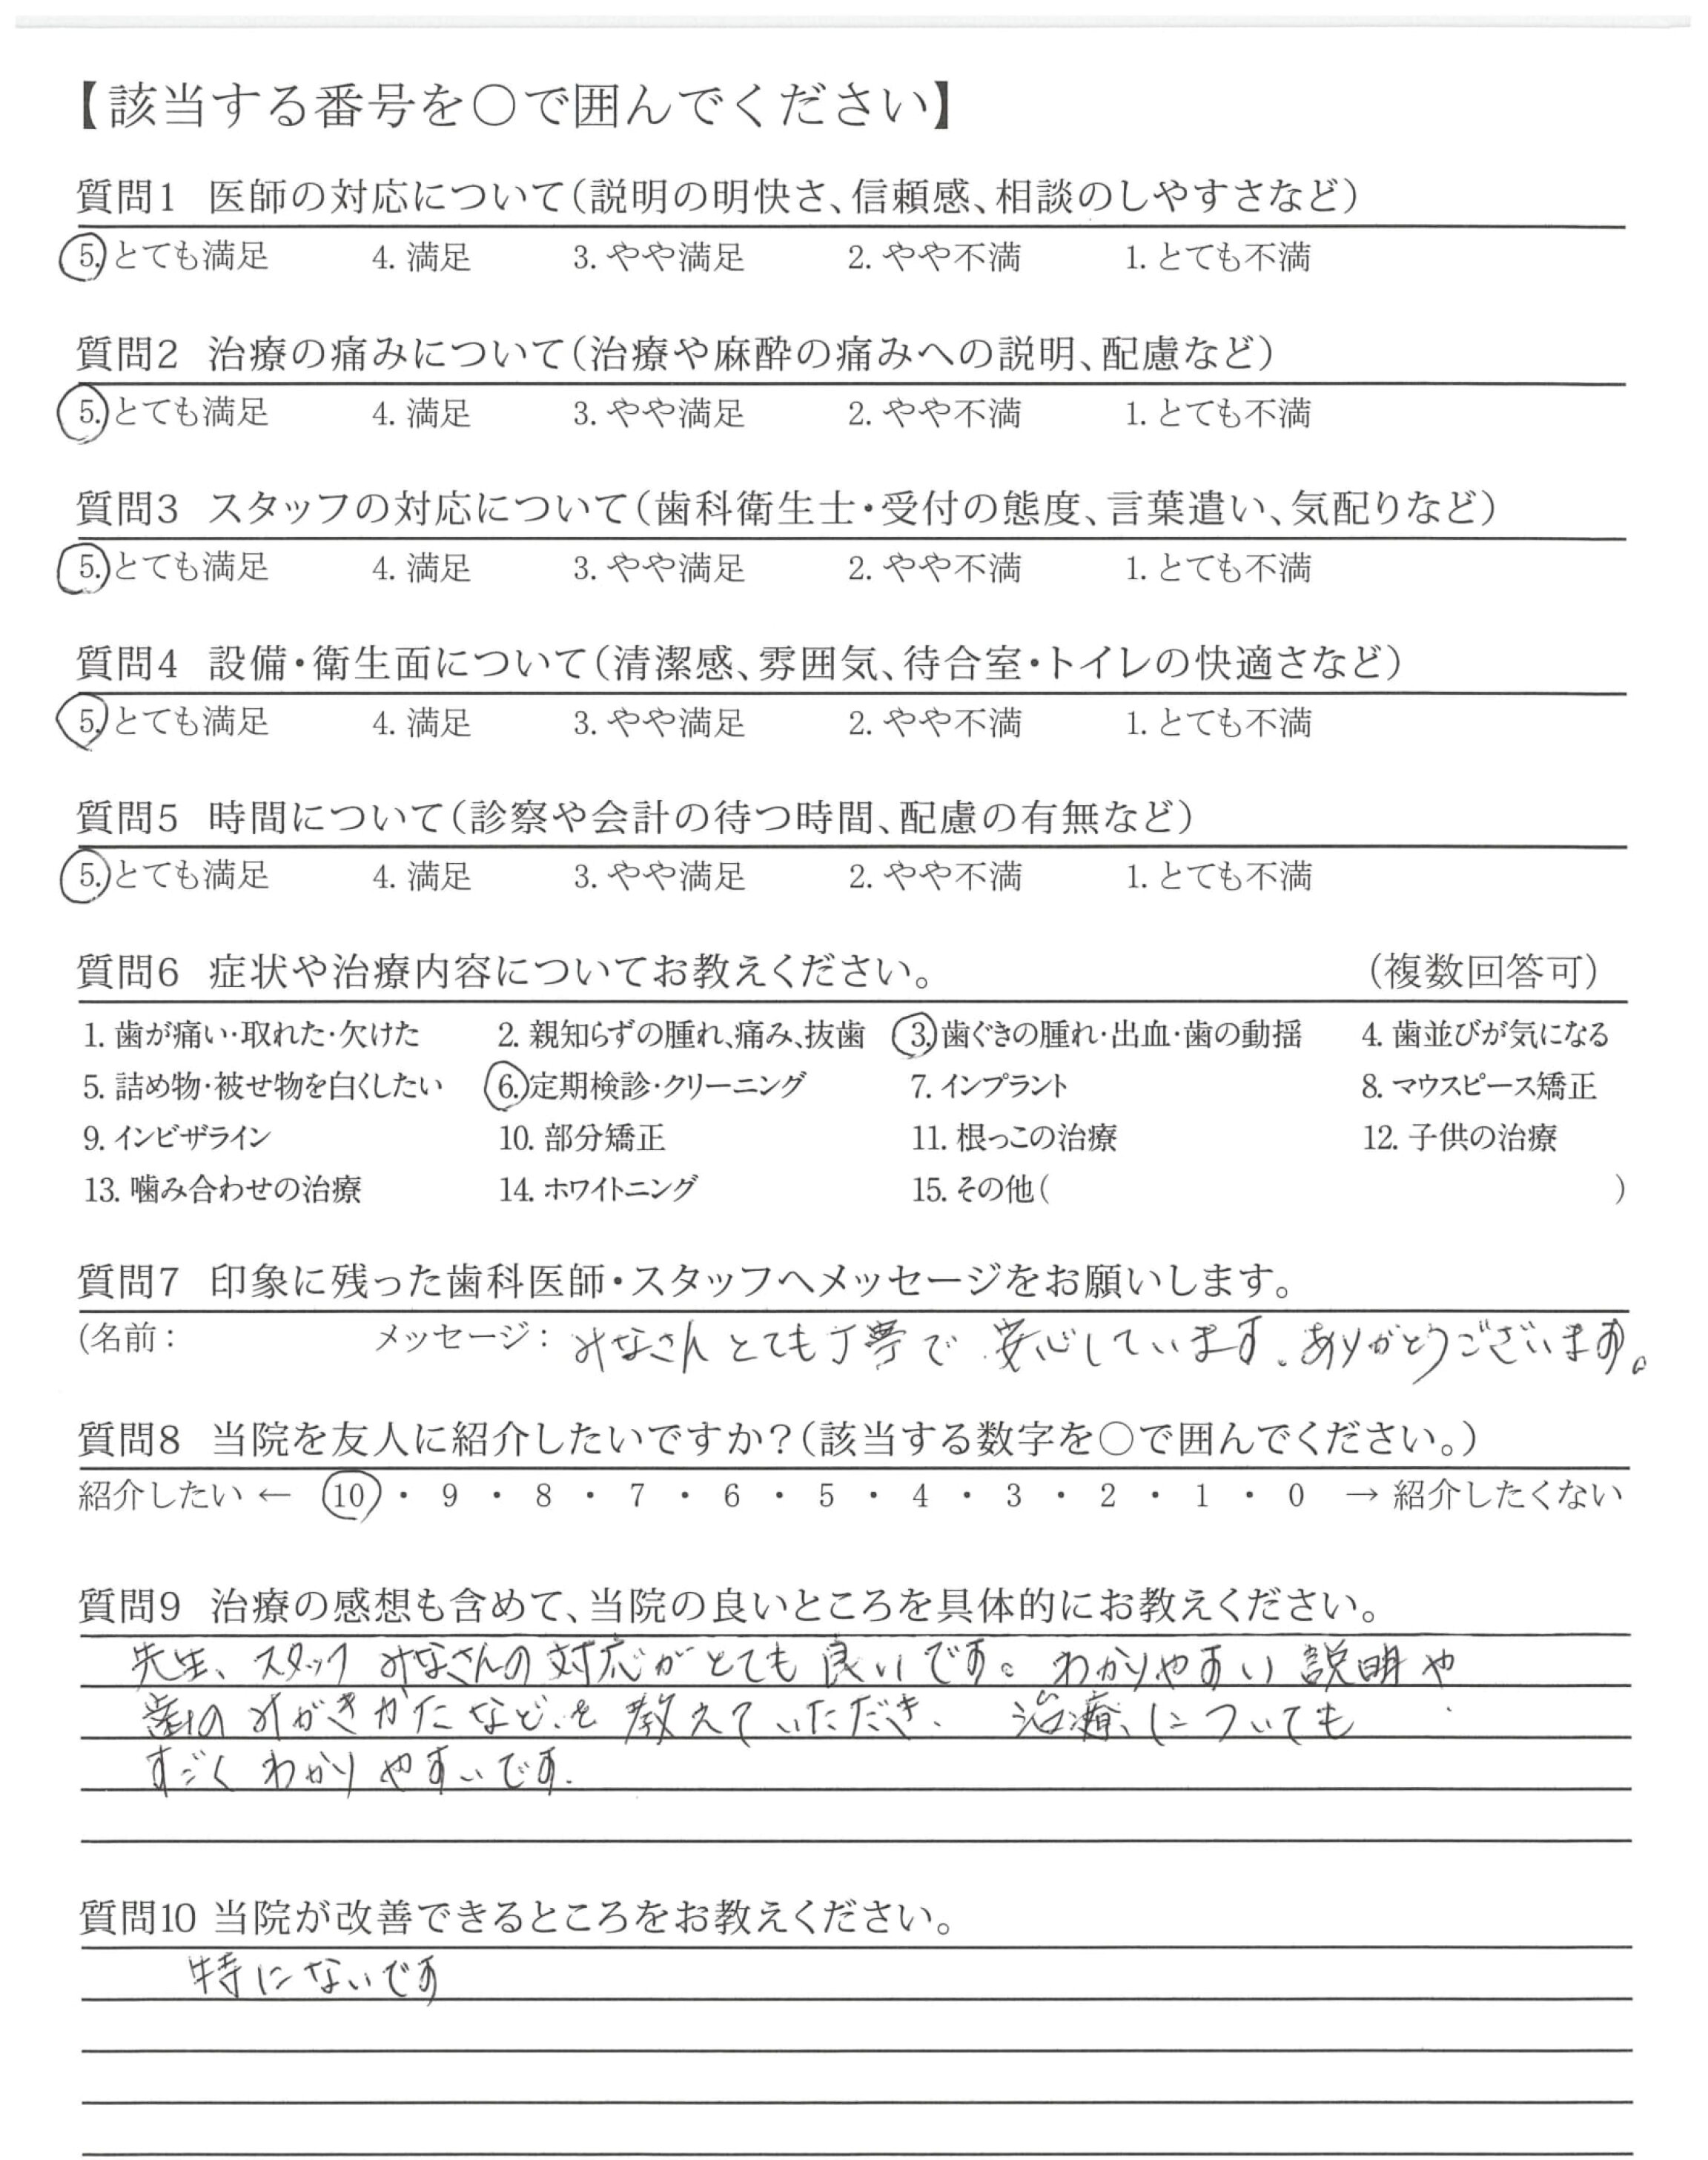 【該当する番号を○で囲んでください】
質問1 医師の対応について（説明の明快さ、信頼感、相談のしやすさなど）
5. とても満足 4. 満足 3. やや満足 2. やや不満 1. とても不満
質問2 治療の痛みについて（治療や麻酔の痛みへの説明、配慮など）
5. とても満足 4. 満足 3. やや満足 2. やや不満 1. とても不満
質問3 スタッフの対応について（歯科衛生士・受付の態度、言葉遣い、気配りなど）
5. とても満足 4. 満足 3. やや満足 2. やや不満 1. とても不満
質問4 設備・衛生面について（清潔感、雰囲気、待合室・トイレの快適さなど）
5. とても満足 4. 満足 3. やや満足 2. やや不満 1. とても不満
質問5 時間について（診察や会計の待つ時間、配慮の有無など）
5. とても満足 4. 満足 3. やや満足 2. やや不満 1. とても不満
質問6 症状や治療内容についてお教えください。 （複数回答可）
1. 歯が痛い・取れた・欠けた 2. 親知らずの腫れ、痛み、抜歯 3. 歯ぐきの腫れ・出血・歯の動揺 4. 歯並びが気になる
5. 詰め物・被せ物を白くしたい 6. 定期検診・クリーニング 7. インプラント 8. マウスピース矯正
9. インビザライン 10. 部分矯正 11. 根っこの治療 12. 子供の治療
13. 噛み合わせの治療 14. ホワイトニング 15. その他（ ）
質問7 印象に残った歯科医師・スタッフへメッセージをお願いします。
（名前： メッセージ： みなさんとても丁寧で 安心しています。ありがとうございます。
質問8 当院を友人に紹介したいですか？（該当する数字を○で囲んでください。）
紹介したい ← 10 ・ 9 ・ 8 ・ 7 ・ 6 ・ 5 ・ 4 ・ 3 ・ 2 ・ 1 ・ 0 → 紹介したくない
質問9 治療の感想も含めて、当院の良いところを具体的にお教えください。
先生、スタッフ みなさんの対応がとても良いです。わかりやすい説明や
歯のみがきかたなどを教えていただき、治療についても
すごくわかりやすいです。
質問10 当院が改善できるところをお教えください。
特にないです